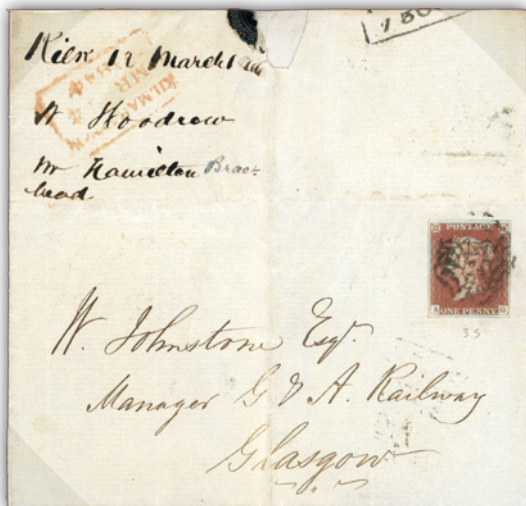 Kilm 12 March 1844
W Woodrow
Mr Hamilton Brae-
head
KILMARNOCK
MR
1844
POSTAGE
ONE PENNY
35
W. Johnstone Esqr.
Manager G & A. Railway
Glasgow